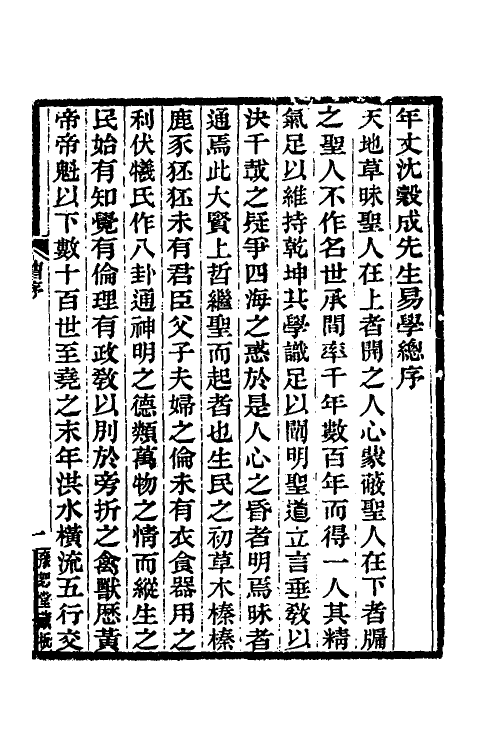 年丈沈穀成先生易學總序
天地草昧聖人在上者開之人心蒙蔽聖人在下者牖
之聖人不作名世承間率千年數百年而得一人其精
氣足以維持乾坤其學識足以闡明聖道立言垂敎以
決千載之疑爭四海之惑於是人心之昏者明焉昧者
通焉此大賢上哲繼聖而起者也生民之初草木榛榛
鹿豕狉狉未有君臣父子夫婦之倫未有衣食器用之
利伏犧氏作八卦通神明之德類萬物之情而縱生之
民始有知覺有倫理有政敎以別於旁折之禽獸歷黃
帝帝魁以下數十百世至堯之末年洪水橫流五行交
序
一
堂藏板